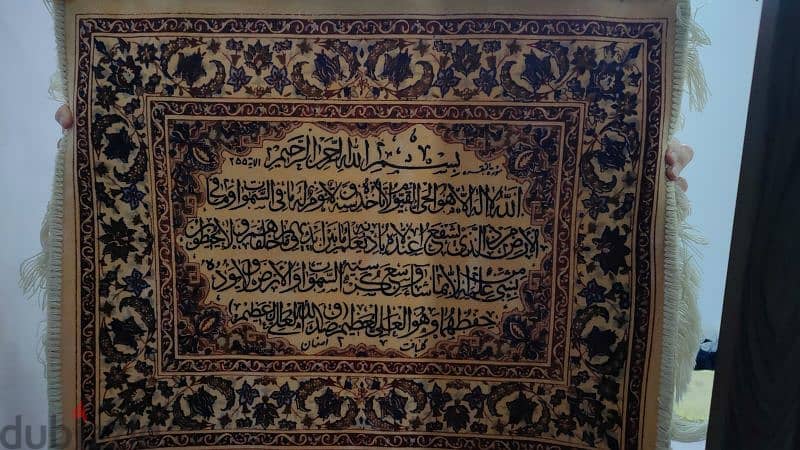 سورة البقرة بسم الله الرحمن الرحيم الآية ٢٥٥
الله لا اله الا هو الحي القيوم لا تأخذه سنة ولا نوم له ما في السموات وما في
الارض من ذا الذي يشفع عنده الا باذنه يعلم ما بين ايديهم وما خلفهم ولا يحيطون
بشيء من علمه الا بما شاء وسع كرسيه السموات والارض ولا يؤده
حفظهما وهو العلي العظيم صدق الله العلي العظيم
dub